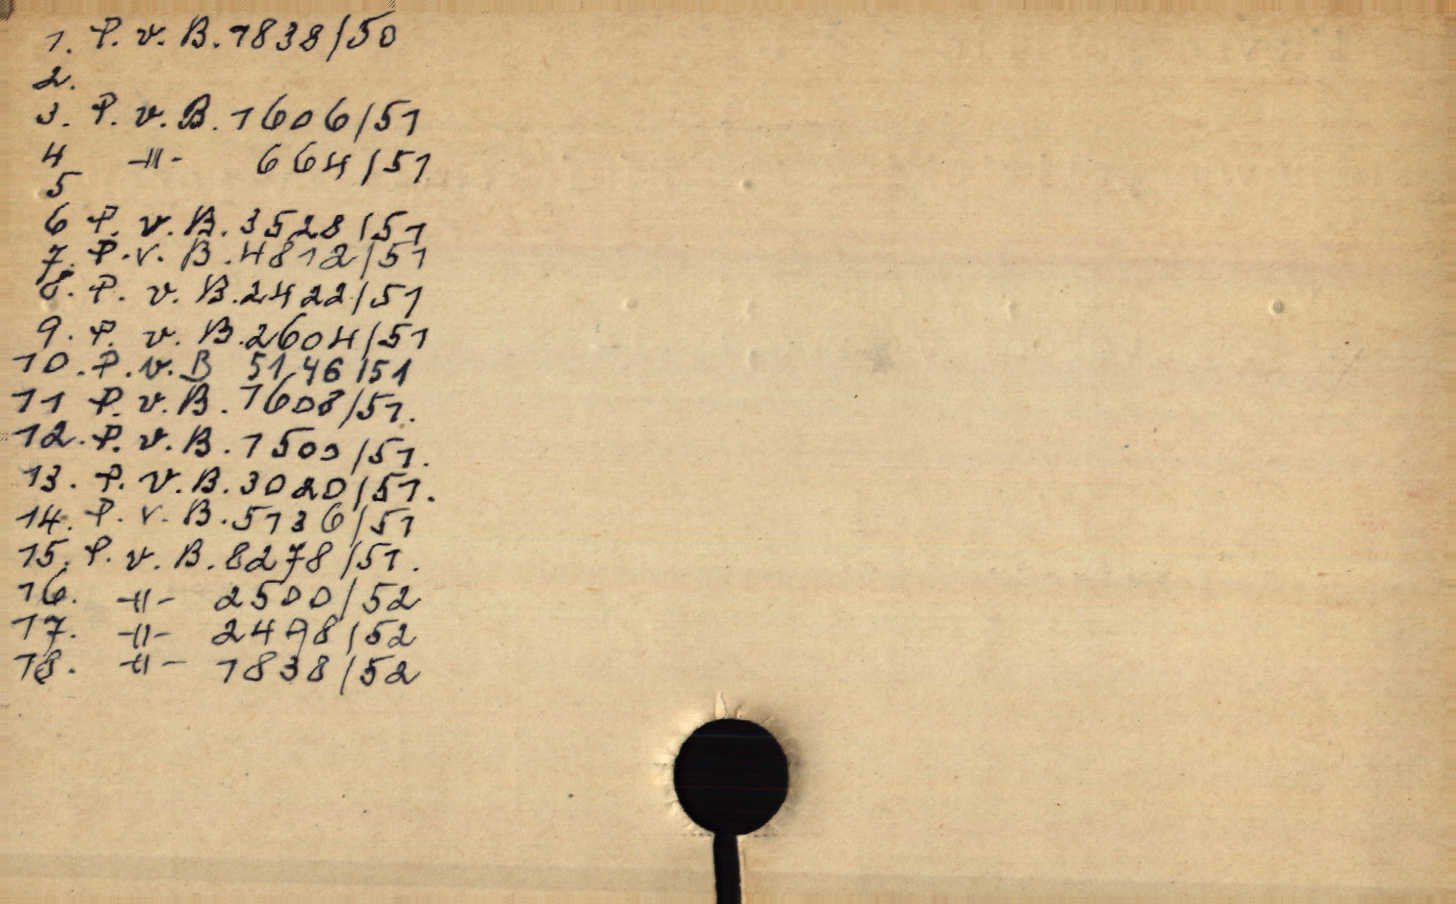 1. P. v. B. 1838/50
2.
3. P. v. B. 1606/51
4 -"- 664/51
5
6 P. v. B. 3528/51
7. P. v. B. 4812/51
8. P. v. B. 2422/51
9. P. v. B. 2604/51
10. P. v. B 5146/51
11 P. v. B. 1608/51.
12. P. v. B. 1500/51.
13. P. v. B. 3020/51.
14. P. v. B. 5136/51
15. P. v. B. 8278/51.
16. -"- 2500/52
17. -"- 2498/52
18. -"- 1838/52